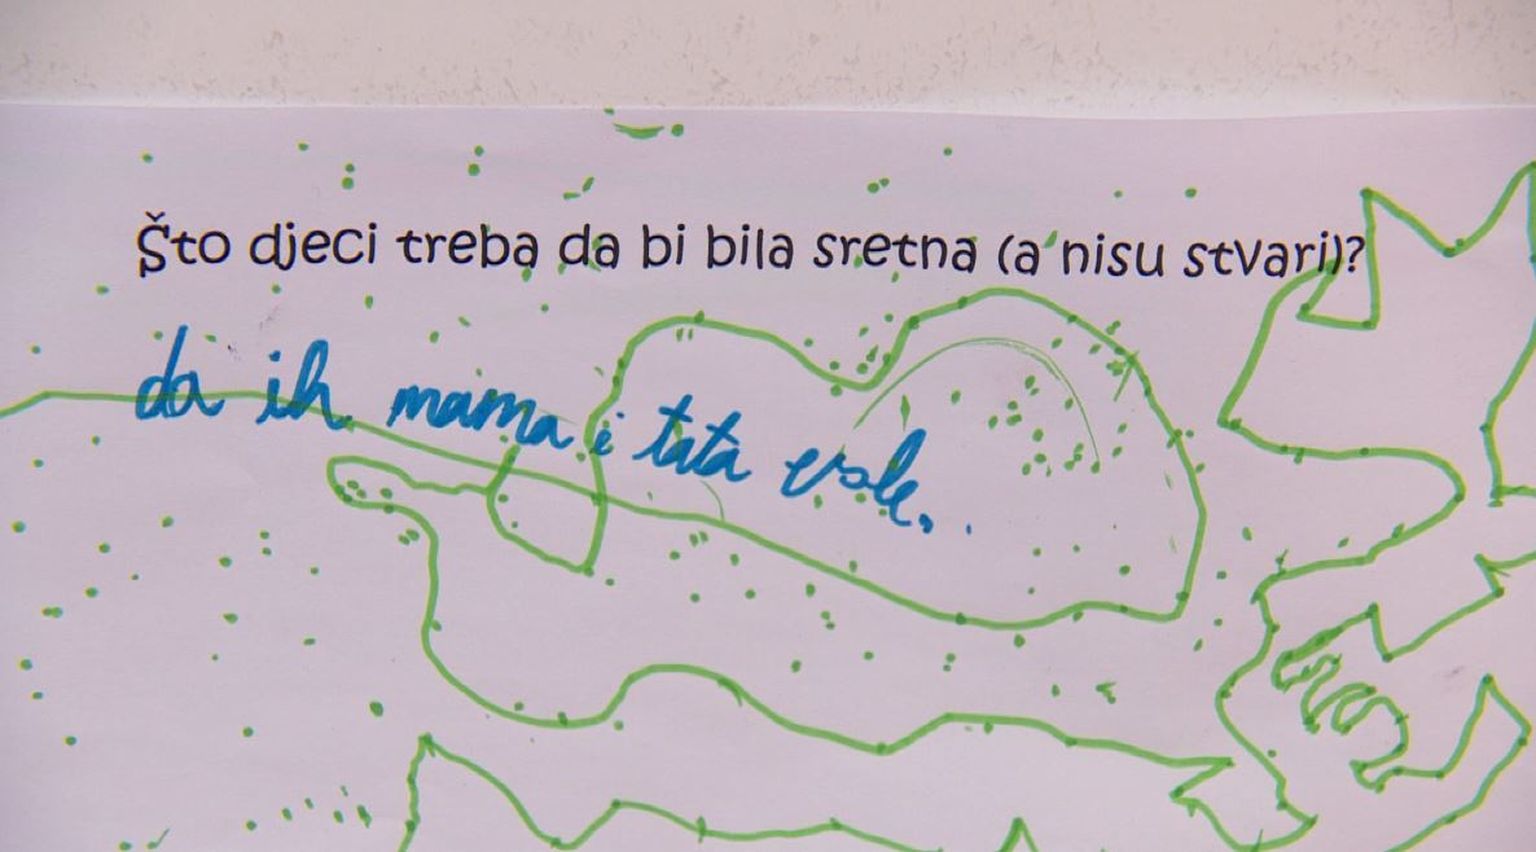 Što djeci treba da bi bila sretna (a nisu stvari)?
da ih mama i tata vole..